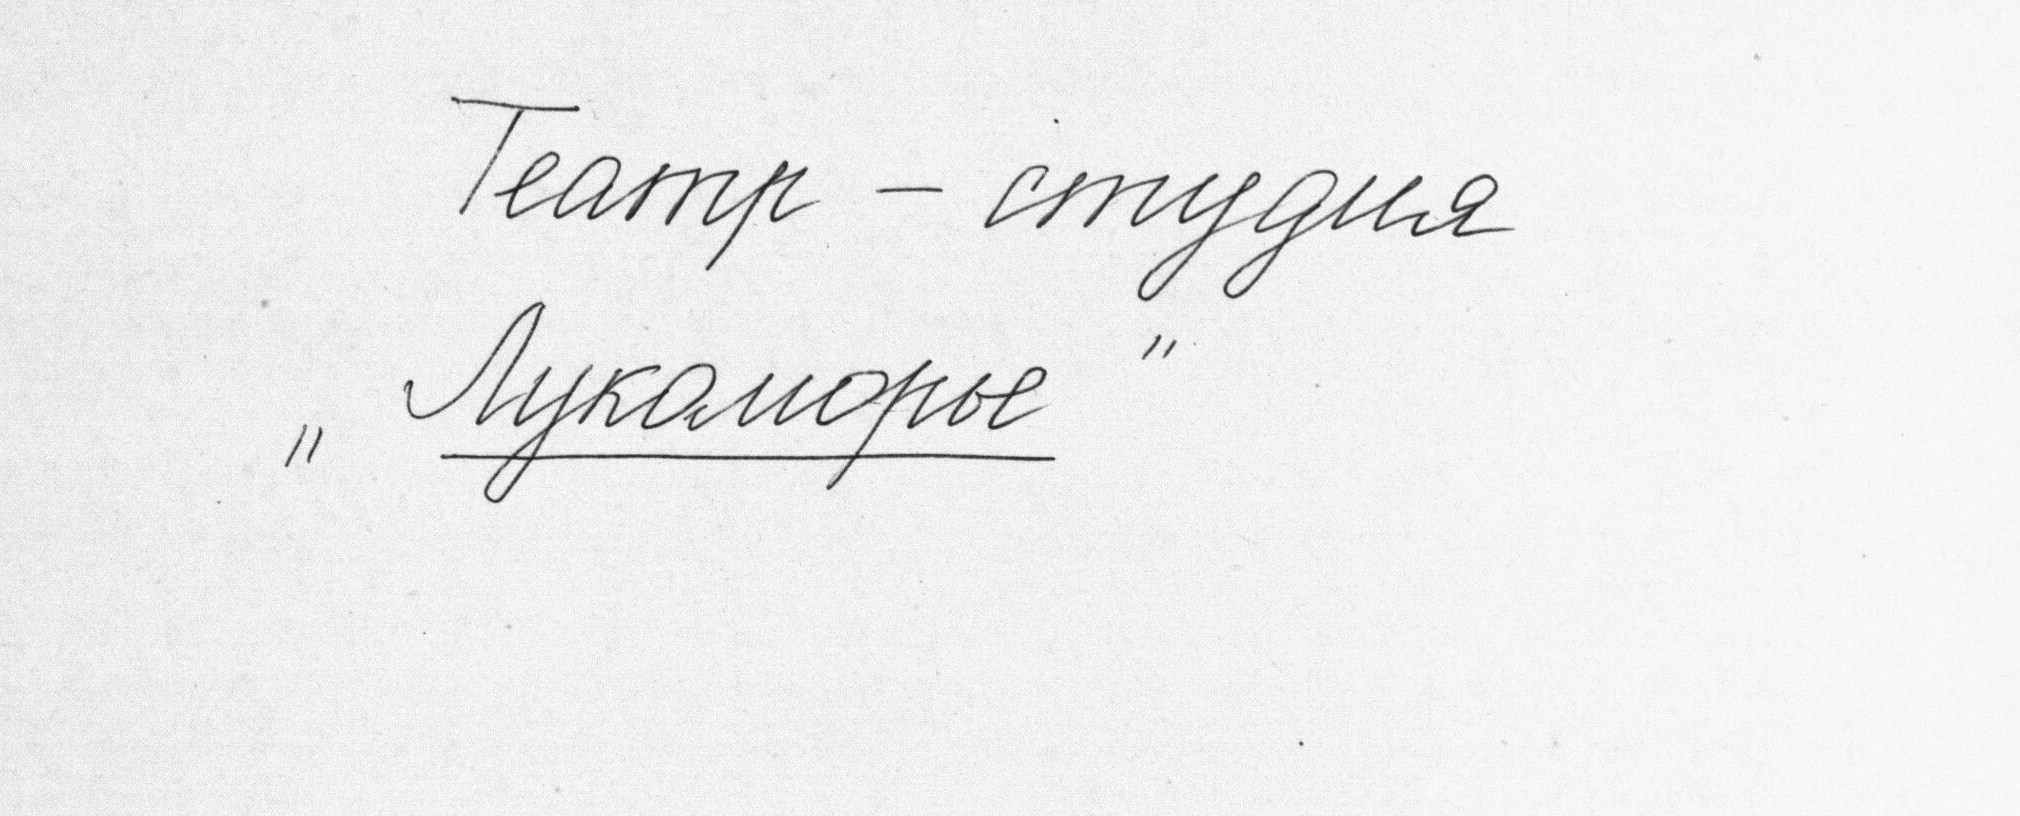 Театр - студия
„Лукоморье"